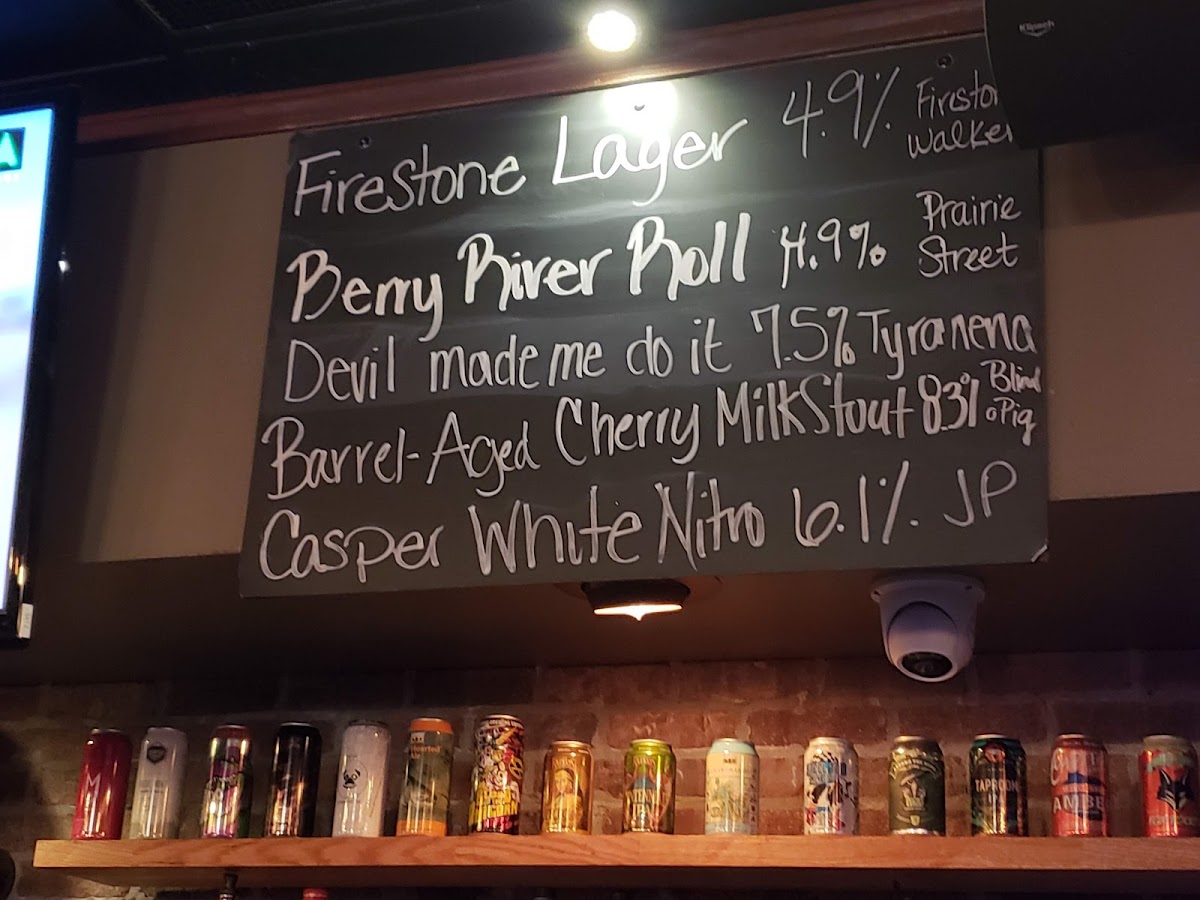 Klipsch
Firestone Lager 4.9% Firestone Walker
Berry River Roll 4.9% Prairie Street
Devil made me do it 7.5% Tyranena
Barrel-Aged Cherry Milk Stout 8.3% Blind Pig
Casper White Nitro 6.1% JP
M
TAPROOM
AMBER